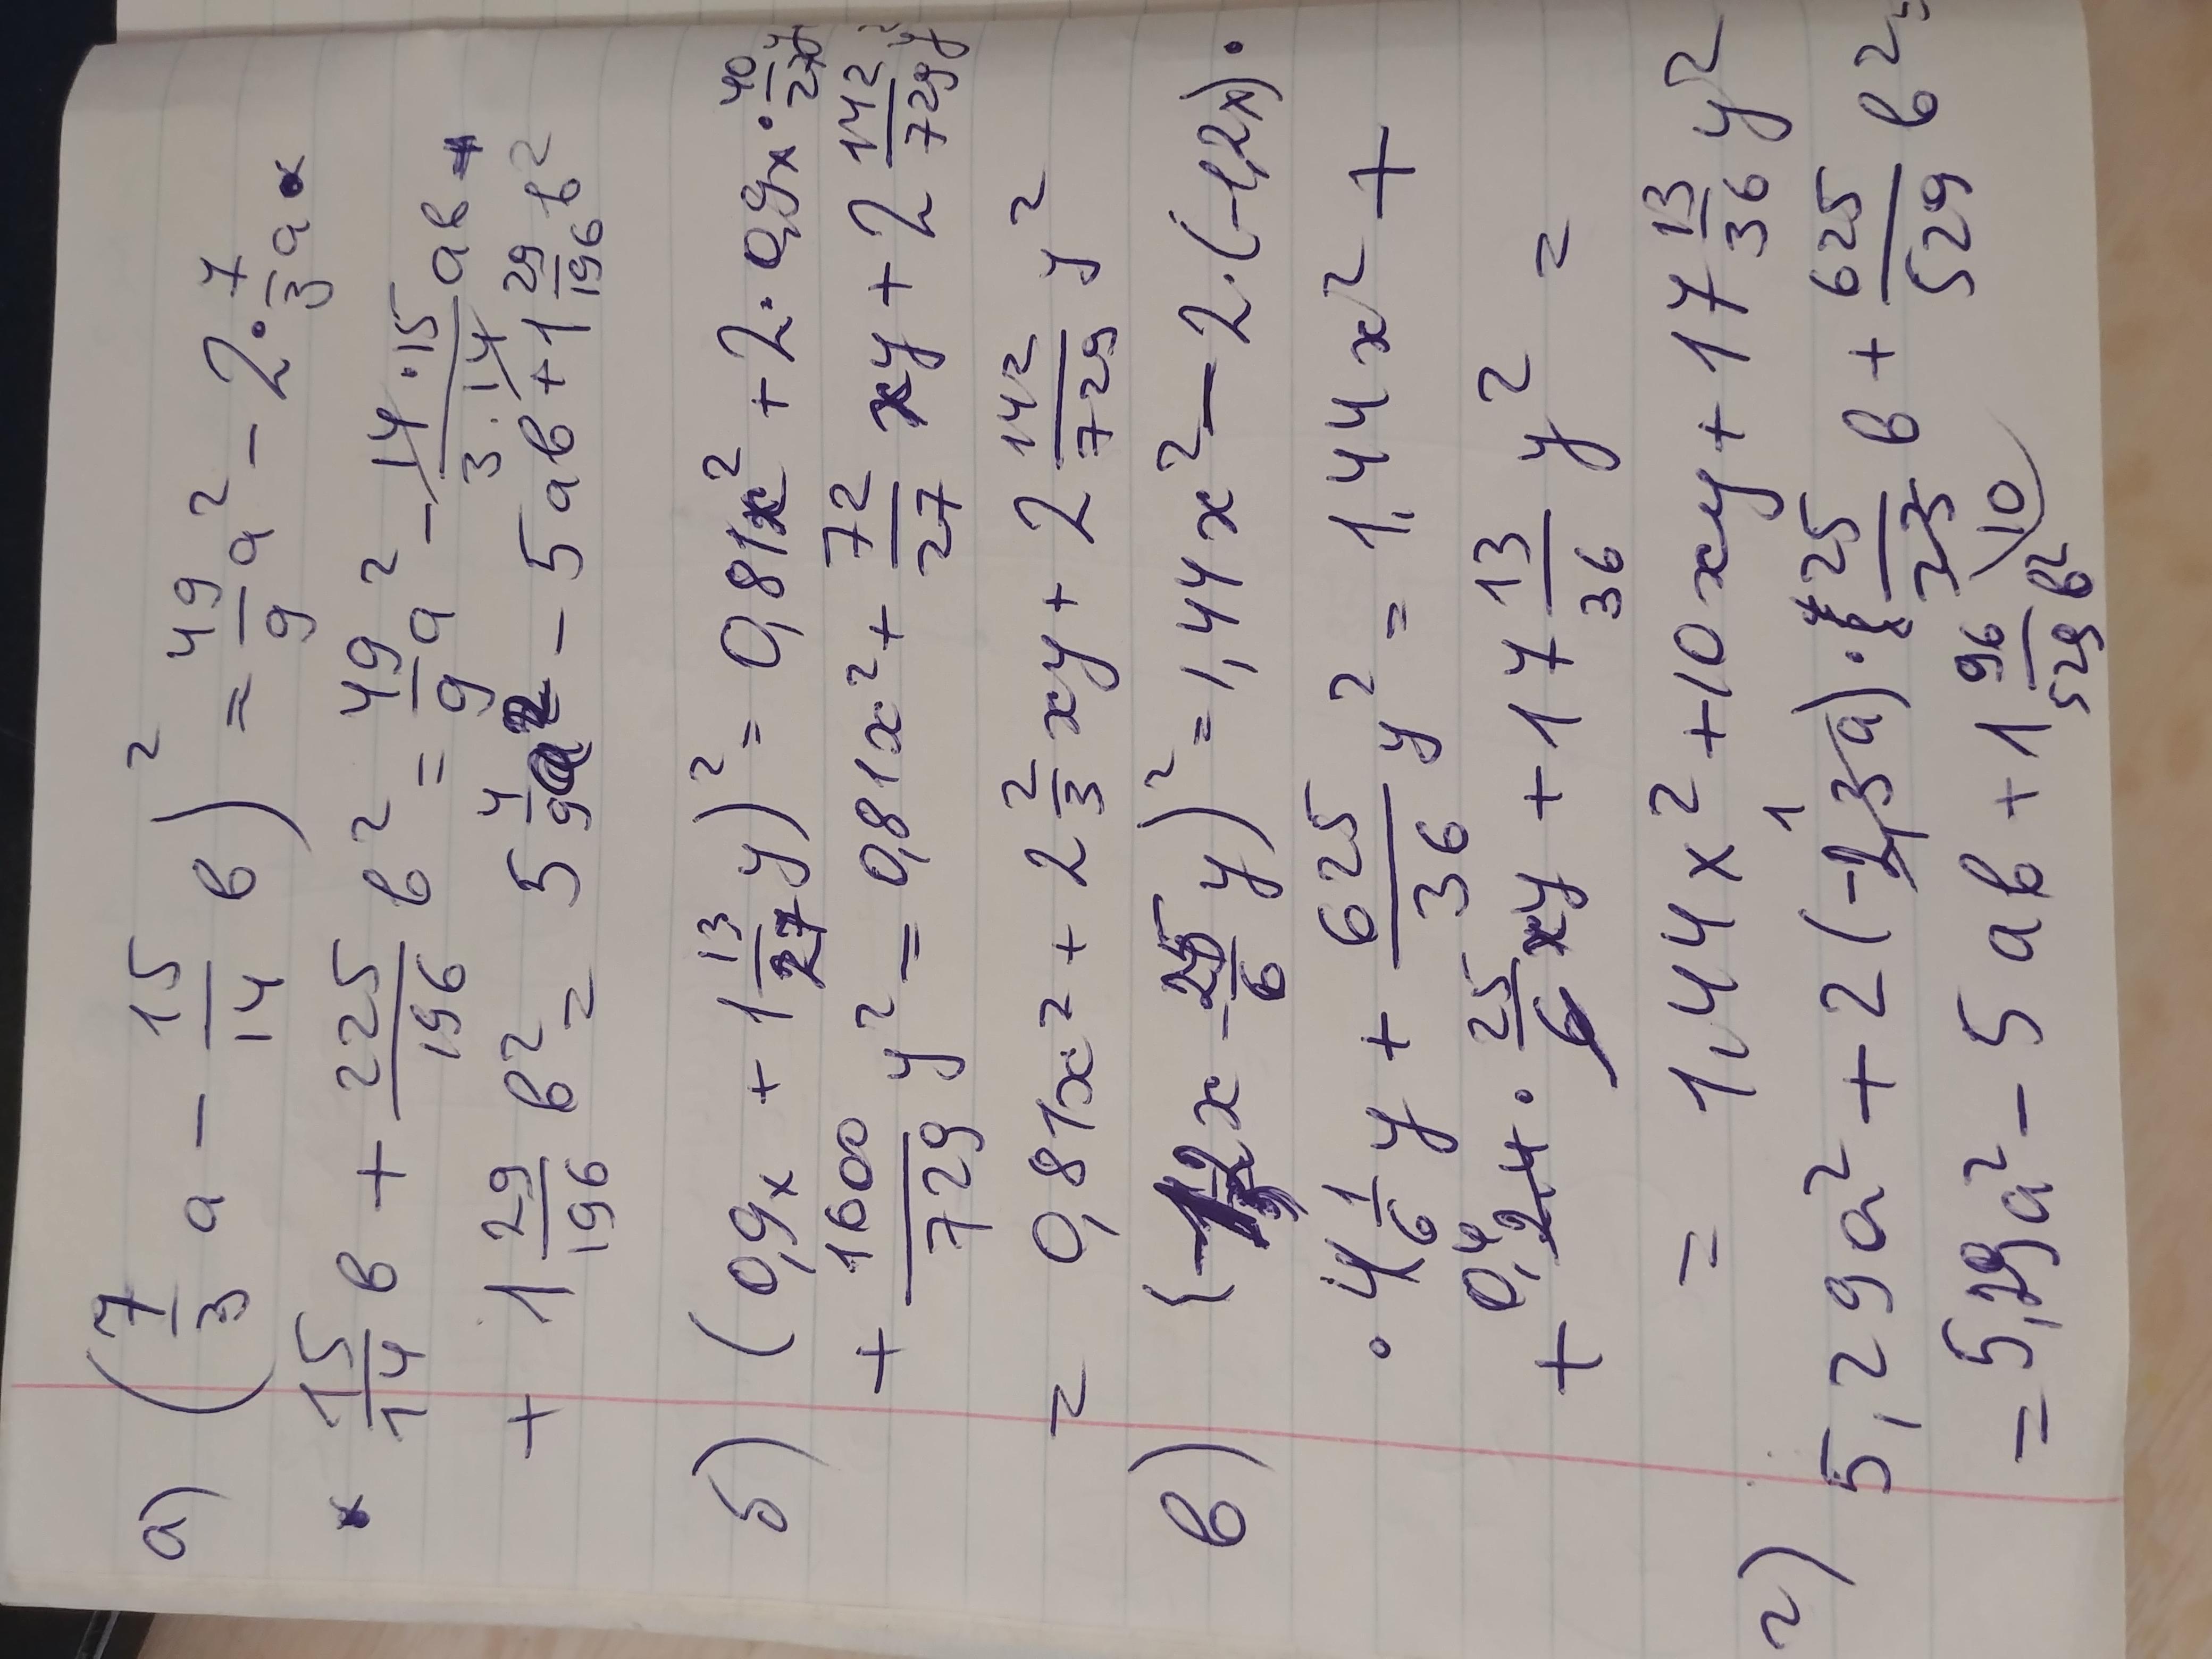 а) (7/3 a - 15/14 в)² = 49/9 a² - 2 · 7/3 a ×
× 15/14 в + 225/196 в² = 49/9 a² - 14 · 15 / 3 · 14 ав +
+ 1 29/196 в² = 5 4/9 a² - 5 ав + 1 29/196 в²
б) (0,9x + 1 13/27 y)² = 0,81x² + 2 · 0,9x · 40/27 y
+ 1600/729 y² = 0,81x² + 72/27 xy + 2 142/729 y²
= 0,81x² + 2 2/3 xy + 2 142/729 y²
в) (-1,2x - 25/6 y)² = 1,44x² - 2 · (-1,2x) ·
· 4 1/6 y + 625/36 y² = 1,44x² +
+ 2,4 0,4 · 25/6 xy + 17 13/36 y² =
= 1,44x² + 10xy + 17 13/36 y²
г) 5,29a² + 2(-2,3a) · 25/23 в + 625/529 в² =
= 5,29a² - 5 ав + 1 96/529 в² \10